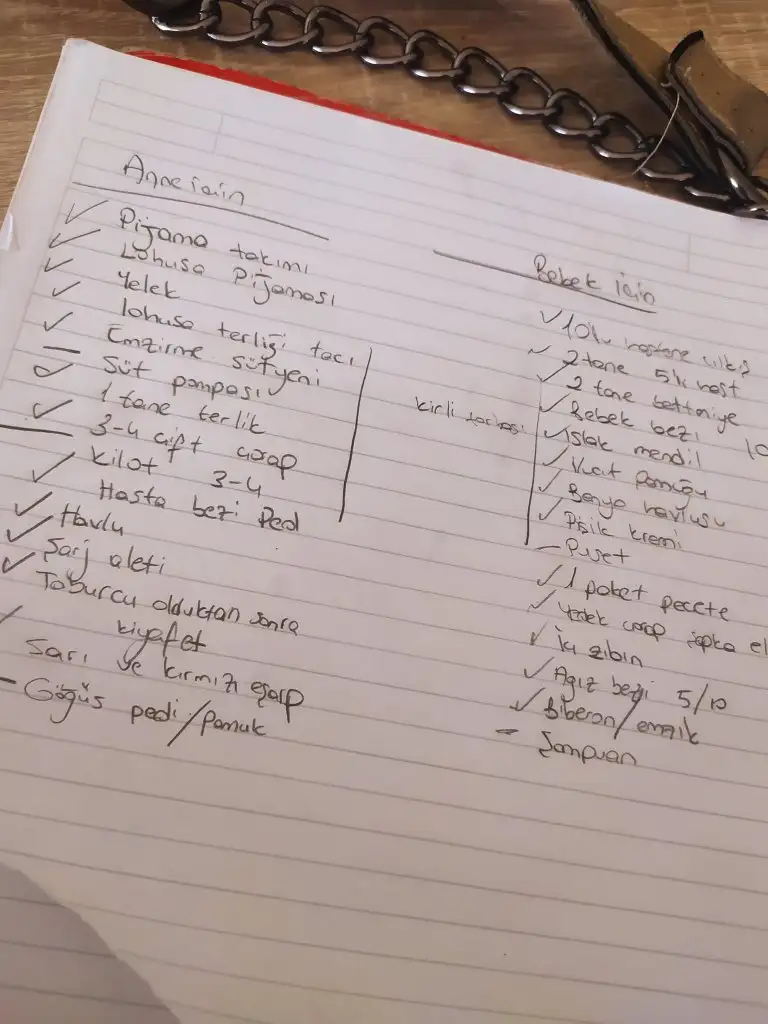 Anne için
Pijama takımı
Lohusa Pijaması
Yelek
lohusa terliği tacı
Emzirme sütyeni
Süt pompası
1 tane terlik
3-4 çift çorap
Kilot 3-4
Hasta bezi Ped
Havlu
Şarj aleti
Taburcu olduktan sonra
kıyafet
Sarı ve kırmızı eşarp
Göğüs pedi/Pamuk
kirli torbası
Bebek için
10lu hastane çıkış
2 tane 5li hast
2 tane battaniye
Bebek bezi 10
Islak mendil
Vücut Pamuğu
Banyo havlusu
Pişik kremi
Puset
1 paket peçete
Yedek çorap şapka el
İç zıbın
Ağız bezi 5/10
Biberon/emzik
Şampuan